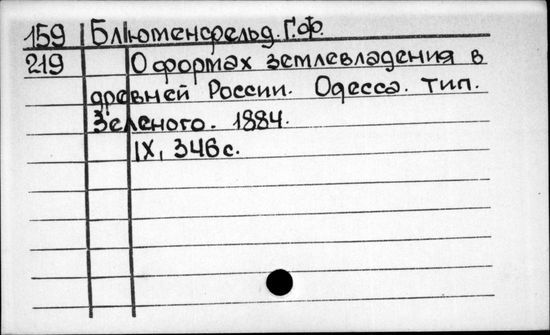 159 Блюменфельд. Г.Ф.
219 О формах землевладения в
древней России. Одесса. тип.
Зеленого. 1884.
IX, 346 с.